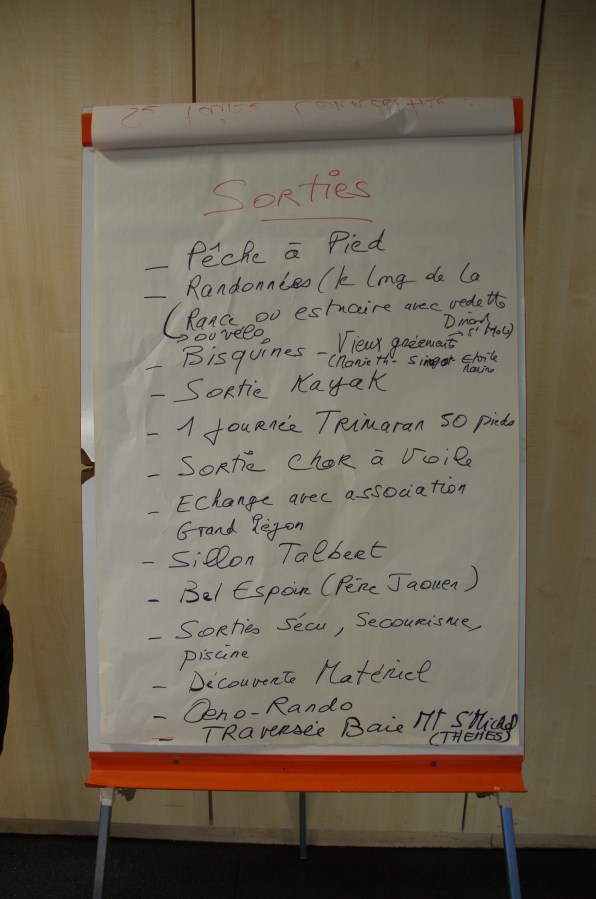 SORTIES
– Pêche à Pied
– Randonnées (le long de la
Rance ou estuaire avec vedette
ou vélo
Dinard
St Malo)
– Bisquines – Vieux gréements
(Marieth-
Etoile
– Sortie Kayak
– 1 Journée Trimaran 50 pieds
– Sortie Char à Voile
– Echange avec association
Grand Légon
– Sillon Talbert
– Bel Espoir (Père Jaouen)
– Sorties sécu, Secourisme,
piscine
– Découverte Matériel
– Oeno-Rando
– TRAVERSÉE Baie MT St Michel
(THEMES)